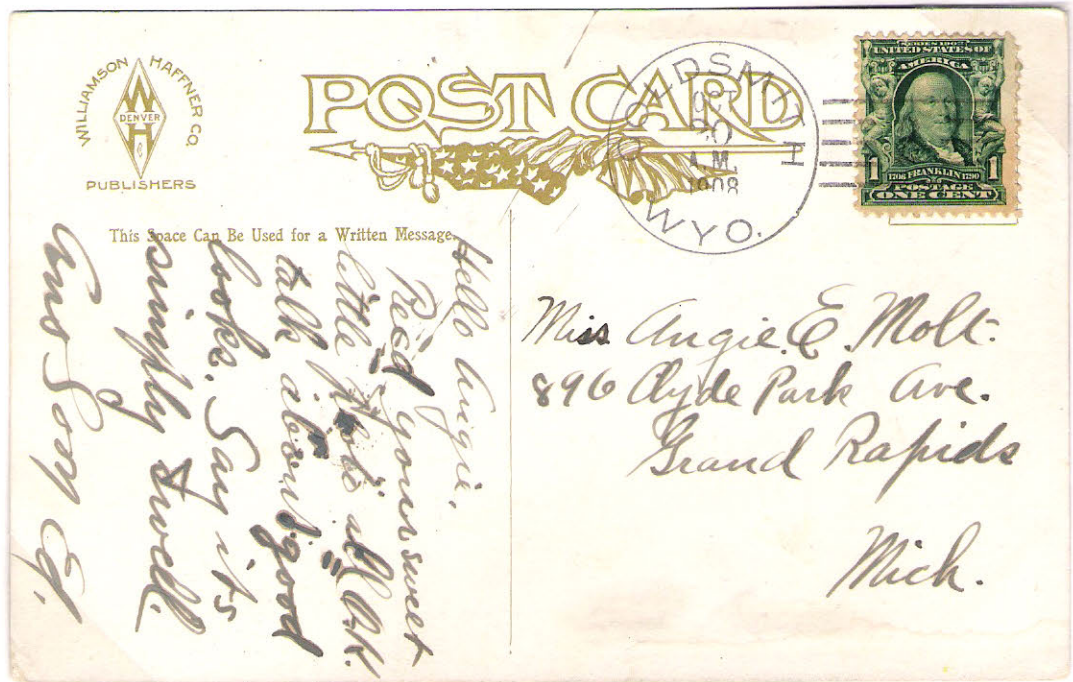 WILLIAMSON HAFFNER CO.
W
DENVER
H
PUBLISHERS
POST CARD
GOLDSMITH
OCT
20
A.M.
1908
WYO.
SERIES 1902
UNITED STATES OF
AMERICA
1 1
1706 FRANKLIN 1790
POSTAGE
ONE CENT
This Space Can Be Used for a Written Message.
Hello Angie.
Rec'd your sweet
little O.K.
talk about good
looks. Say its
simply swell.
Ans Soon Ed.
Miss Angie. E. Molt.
896 Clyde Park Ave.
Grand Rapids
Mich.